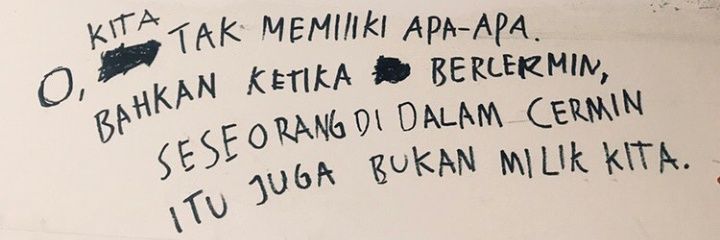 O, KITA TAK MEMILIKI APA-APA.
BAHKAN KETIKA BERCERMIN,
SESEORANG DI DALAM CERMIN
ITU JUGA BUKAN MILIK KITA.